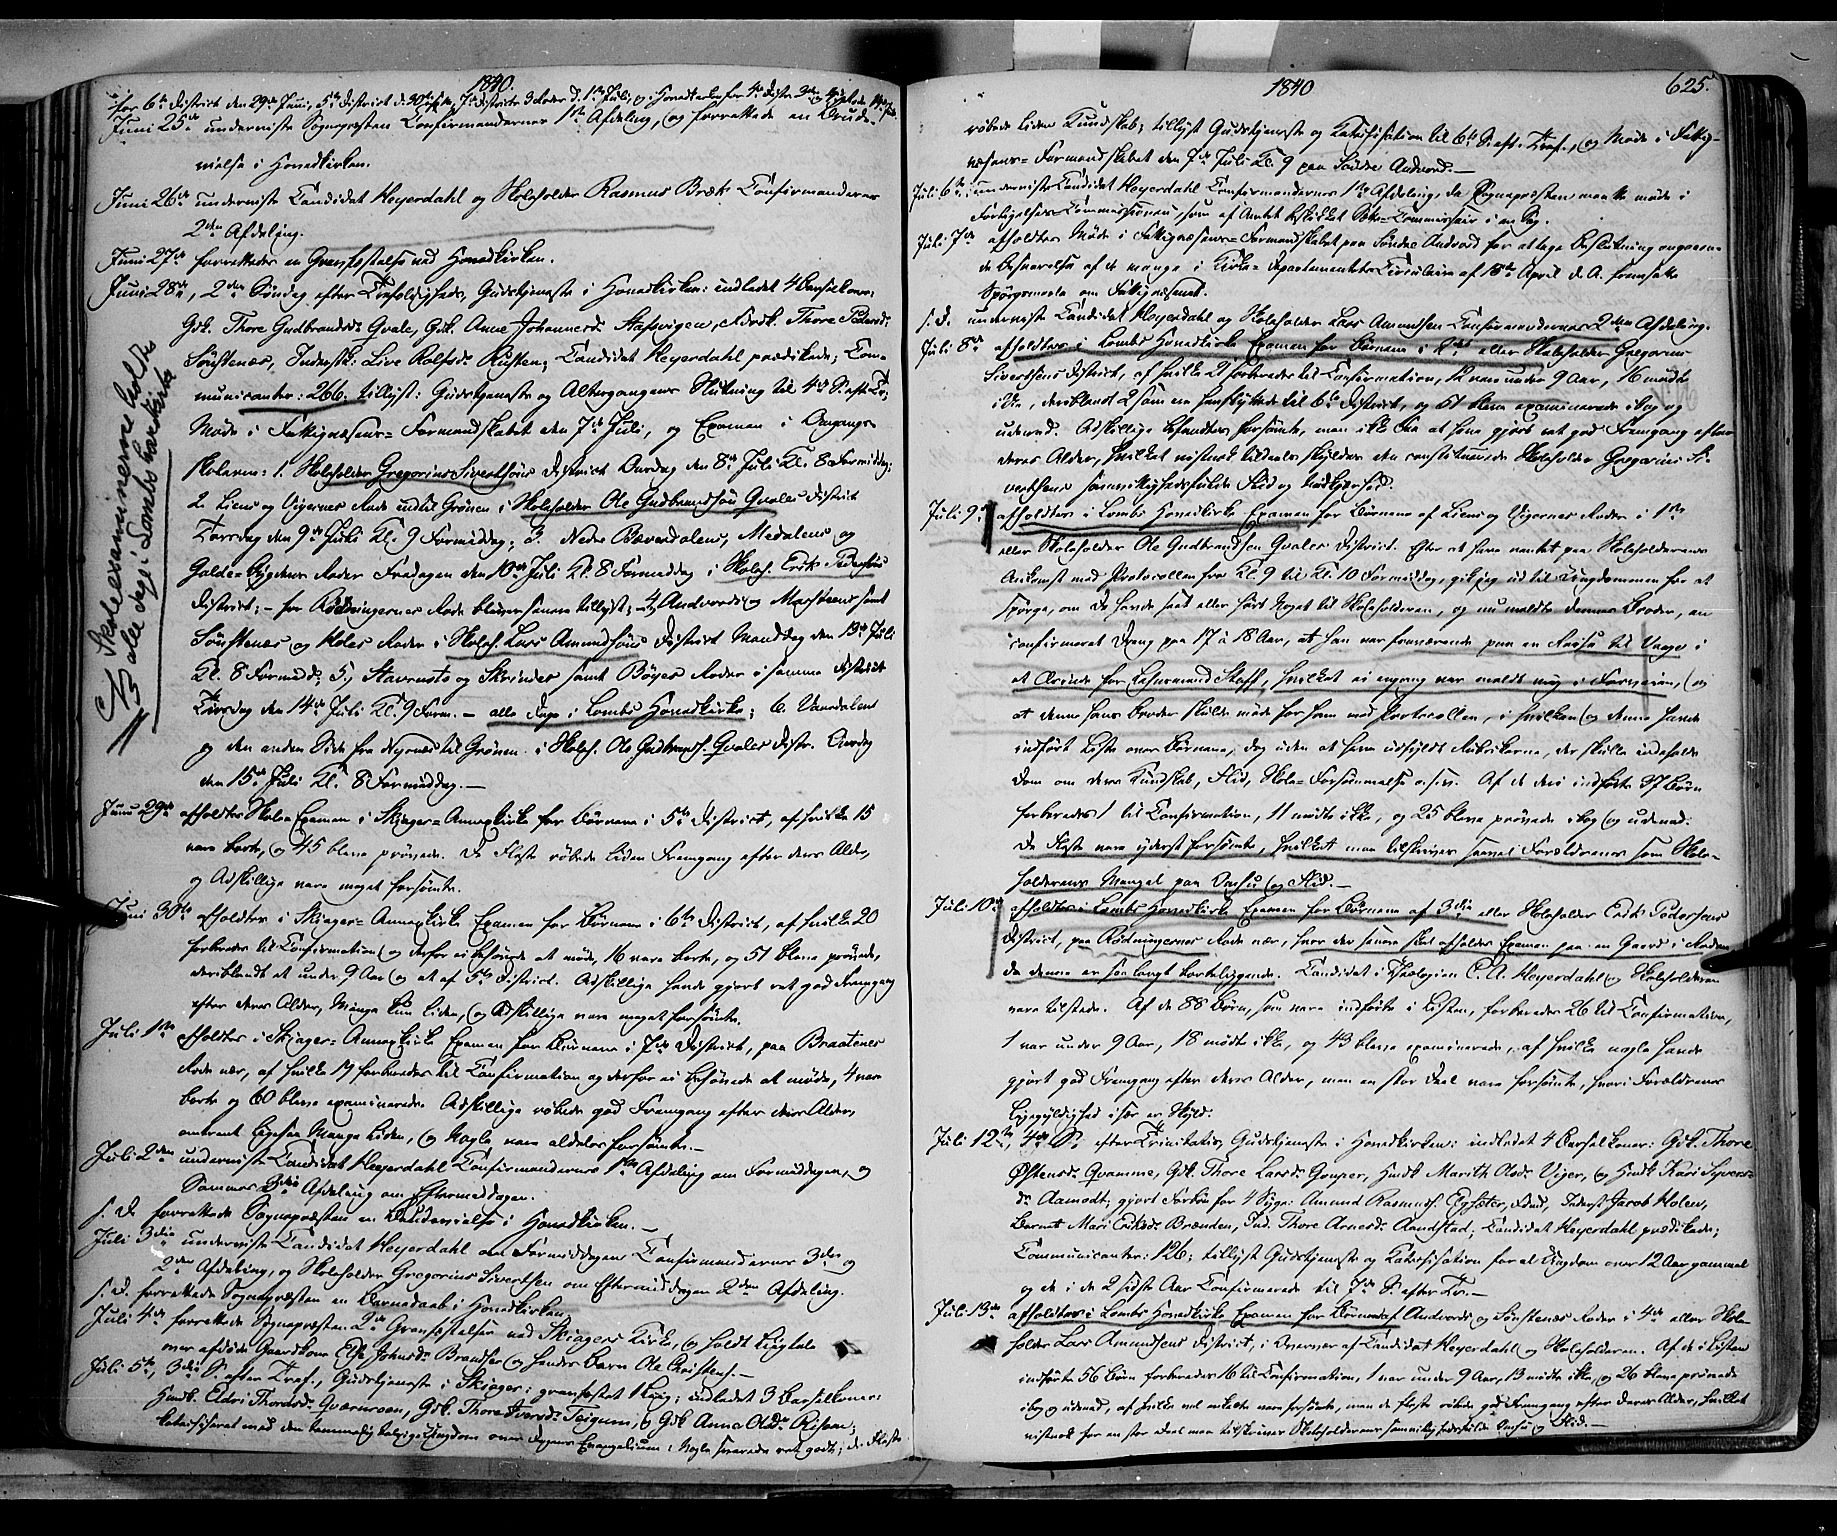 1840.
for 6te District den 29de Juni, 5te District d. 30te
Juni 25de underviste Sognepræsten Confirmanderner 1ste Afdeling, og forrettede en Brude-
vielse i Hovedkirken.
Juni 26de underviste Candidat Heyerdahl og Skoleholder Rasmus Bræk Confirmanderner
2den Afdeling.
Juni 27de forrettedes en Gravfæstelse ved Hovedkirken.
Juni 28de, 2den Søndag efter Trefoldighed, Gudstjeneste i Hovedkirken: indledet 4 Barselkoner:
Gdk. Thore Gudbrandsd. Qvale, Gdk. Anne Johannesd. Staffvigen, Thore Pedersd.
Søustenæs, Inderstk: Live Rolfsd. Rusten; Candidat Heyerdahl prædikede; Com-
municanter: 266. tillyst: Gudstjeneste og Altergangens Slutning til 4de S. eft. Tr;
Møde i Fattigvæsens-Formandskabet den 7de Juli, og Examen i Omgangs-
skolerne: 1. Skoleholder Gregorius Sivertsens District Onsdag den 8de Juli Kl. 8 Formiddag;
2. Liens og Vigernes Rode indtil Grönen i Skoleholder Ole Gudbrandsens Qvales District
Torsdag den 9de Juli Kl. 9 Formiddag; 3. Nedre Bæverdalens, Medalens og
Galde-Bygdens Roder Fredagen den 10de Juli Kl. 8 Formiddag i Skoleh. Erik Pedersens
District; - for Rödningernes Rode bliver senere tillyst; 4, Andvords og Marstens samt
Sönstenes og Holes Roder i Skoleh. Lars Amundsens District Manddag den 13de Juli
Kl. 8 Formidd; 5, Stavrusts og Skrindes samt Böyes Roder i samme District
Tirsdag den 14de Juli Kl. 9 Form. - alle Dage i Lomb's Hovedkirke; 6. Vaardalens
og den anden Side fra Nyrnes til Grönen i Skoleh. Ole Gudbrands. Qvales Distr. Onsdag
den 15de Juli Kl. 8 Formiddag. —
Skoleexaminerne holdtes
alle dage i Lombs hovkirke
Juni 29de afholdtes Skole-Examen i Skiager-Annexkirke for Börnene i 5te District, af hvilke 15
vare borte, og 45 bleve prövede. De Fleste röbede liden Fremgang efter deres Alder,
og Adskillige vare meget forsömte.
Juni 30te afholdtes i Skiager-Annexkirke Examen for Börnene i 6te District, af hvilke 20
forberedes til Confirmation og derfor ei behövede at möde, 16 vare borte, og 51 bleve prövede,
deriblandt et under 9 Aar og et af 5te District. Adskillige havde gjort ret god Fremgang
efter deres Alder, Mange kun liden, og Adskillige vare meget forsömte.
Juli 1ste afholdtes i Skiager-Annexkirke Examen for Börnene i 7de District, paa Braatenes
Rode nær, af hvilke 19 forberedes til Confirmation og derfor ei behövede at möde, 4 vare
borte og 60 bleve examinerede. Adskillige röbede god Fremgang efter deres Alder,
omtrent ligesaa Mange liden, og Nogle vare aldeles forsömte. —
Juli 2den underviste Candidat Heyerdahl Confirmandernes 1ste Afdeling om Formiddagen, og
Sammes 3die Afdeling om Eftermiddagen.
s. D. forrettede Sognepræsten en Brudevielse i Hovedkirken. —
Juli 3die underviste Candidat Heyerdahl om Formiddagen Confirmanderner 3die og
2den Afdeling, og Skoleholder Gregorius Sivertsen om Eftermiddagen 2den Afdeling.
s. D. forrettede Sognepræsten en Barnedaab i Hovedkirken.
Juli 4de forrettede Sognepræsten 2de Gravfæstelser ved Skiagers Kirke, og holdt Liigtale
over afdöde Gaardkone Eli Johnsd. Brandser og hendes Barn Ole Christens. —
Juli 5te, 3die S. efter Tref., Gudstjeneste i Skiager: gravfæstet 1 Liig; indledet 3 Barselkoner:
Husk. Eldri Thoresd. Qværnreen, Gdk. Thore Iversd. Teigum, og Gdk Anne Olsd. Risheim;
katechiseret med den Ungdom over Dagens Evangelium: Nogle svarede ret godt; de Fleste
1840
625.
röbede liden Kundskab; tillyst Gudstjeneste og Katechisation til 6te S. eft. Tref., og Möde i Fattig-
væsens-Formandskabet den 7de Juli Kl. 9 paa Söndre Andvord. —
Juli 6te underviste Candidat Heyerdahl Confirmandernes 1ste Afdeling, da Sognepræsten maatte möde i
Forligelses-Commissionen som af Amtet beskikket Sætte-Commissair i en Sag.
Juli 7de afholdtes Möde i Fattigvæsens-Formandskabet paa Söndre Andvord for at tage Beslutning angaaen-
de Besvarelse af de mange i Kirke-Departementets Circulaire af 18de April d. A. fremsatte
Spörgsmaale om Fattigvæsenet.
s. D. underviste Candidat Heyerdahl og Skoleholder Lars Amundsen Confirmanderner 2den Afdeling.
Juli 8de afholdtes i Lombs Hovedkirke Examen for Börnene i 2det eller Skoleholder Gregorius
Sivertsens District, af hvilke 21 forberedes til Confirmation, 12 vare under 9 Aar, 16 mödte
ikke, deriblandt 2 som ere henflyttede til 6te District, og 51 bleve examinerede i Bog og
udenad. Adskillige befandtes forsömte, men ikke Faa at have gjort ret god Fremgang efter
deres Alder, hvilket vistnok tildeels skyldes den constituerede Skoleholder Gregorius Si-
vertsens samvittighedsfulde Flid og Nidkjærhed.
Juli 9de afholdtes i Lombs Hovedkirke Examen for Börnene af Liens og Vigernes Roder i 1ste
eller Skoleholder Ole Gudbrandsen Qvales District. Efter at have ventet paa Skoleholderens
Ankomst med Protocollen fra Kl. 9 til Kl. 10 Formiddag, gik jeg ud til Ungdommen for at
spörge, om De havde seet eller hört Noget til Skoleholderen, og nu meldte dennes Broder, en
confirmeret Dreng paa 17 à 18 Aar, at han var fraværende paa en Reise til Vaage i
et Ærinde for Lehnsmand Staff, hvilket ei engang var meldt mig i Forveien, og
at denne hans Broder skulde möde for ham med Protocollen, i hvilken og denne havde
indfört Liste over Börnene, dog uden at have udfyldt Rubrikerne, der skulle indeholde
Dom om deres Kundskab, Flid, Skole-Forsömmelse o.s.v. Af de deri indförte 37 Börn
forberedes 1 til Confirmation, 11 mödte ikke, og 25 bleve prövede i Bog og udenad.
De Fleste vare yderst forsömte, hvilket maa tilskrives saavel Forældrenes som Skole-
holderens Mangel paa Omhu og Flid. —
Juli 10de afholdtes i Lombs Hovedkirke Examen for Börnene af 3die eller Skoleholder Erik Pedersens
District, paa Rödningernes Rode nær, hvor der senere skal afholdes Examen paa en Gaard i Roden
da denne er saa langt bortliggende. Candidat i Theologien C. A. Heyerdahl og Skoleholderen
vare tilstede. Af de 88 Börn, som vare indförte i Listen, forberedes 26 til Confirmation,
1 var under 9 Aar, 18 mödte ikke, og 43 bleve examinerede, af hvilke nogle havde
gjort god Fremgang efter deres Alder, men en stor Deel vare forsömte, hvori Forældrenes
Ligegyldighed især er Skyld.
Juli 12te, 4de S. efter Trinitatis, Gudstjeneste i Hovedkirken: indledet 4 Barselkoner: Gdk. Thore
Östensd. Qvamme, Gdk. Thore Larsd. Gouper, Husk. Marith Olsd. Viger, og Husk. Kari Sivers-
d. Aamodt; gjort Forbön for 4 Syge: Amund Rasmuss. Inderst Jacob Holen,
Barnet Mari Eriksd. Brænden, Ind. Thore Arnesd. Aandstad; Candidat Heyerdahl prædikede;
Communicanter: 126; tillyst Gudstjeneste og Katechisation for al Ungdom over 12 Aar gammel
og de i de 2 sidste Aar Confirmerede til 7de S. efter Tr. —
Juli 13de afholdtes i Lombs Hovedkirke Examen for Börnene af Andvords og Sönstenæs Roder i 4de eller Skole-
holder Lars Amundsens District, i Overvær af Candidat Heyerdahl og Skoleholderen. Af de i Listen
indförte 56 Börn forberedes 16 til Confirmation, 1 var under 9 Aar, 13 mödte ikke, og 26 bleve prövede
i Bog og udenad, af hvilke vel enkelte vare forsömte, men de Fleste röbede god Fremgang efter deres Alder, hvilket
vistnok for en stor Deel maa tilskrives Skoleholderens samvittighedsfulde Omhu og Flid. —